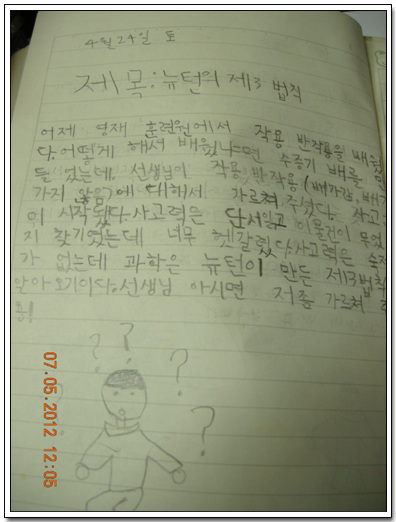 4월 24일 토
제목: 뉴턴의 제3 법칙
어제 영재 훈련원에서 작용 반작용을 배웠
다. 어떻게 해서 배웠냐면 수증기 배를 만
들었는데, 선생님이 작용, 반작용(배가감,
가지 않음)에 대해서 가르쳐 주셨다. 사고
이 시작됐다. 사고력은 단서읽고 이물건이 무엇
지 찾기였는데 너무 헷갈렸다. 사고력은 숙제
가 없는데 과학은 뉴턴이 만든 제13법칙
알아오기이다. 선생님 아시면 저좀 가르쳐
용!
? ? ? ?
07.05.2012 12:05